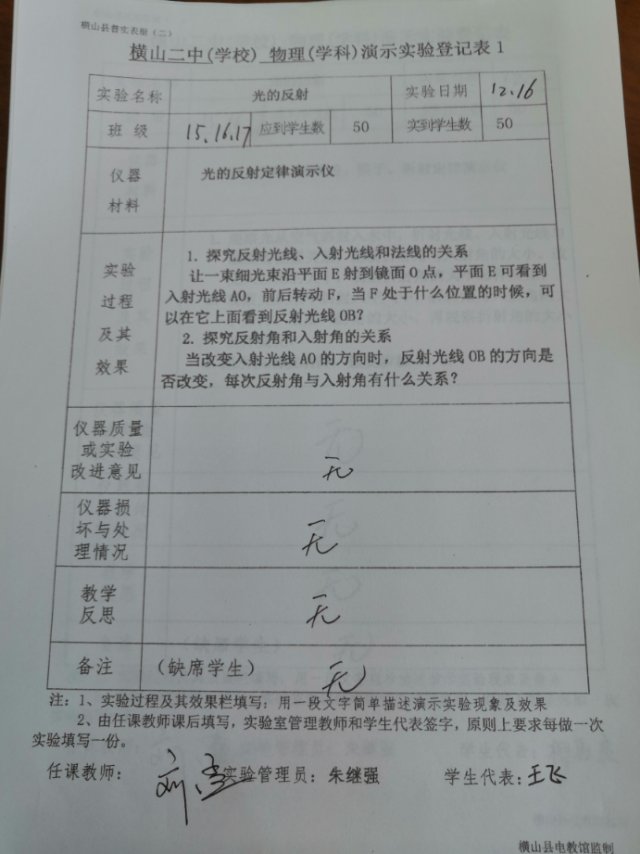 横山县普实表册（二）
横山二中(学校) 物理(学科)演示实验登记表 1
实验名称 光的反射 实验日期 12.16
班 级 15.16.17 应到学生数 50 实到学生数 50
仪器
材料
光的反射定律演示仪
实验
过程
及其
效果
1. 探究反射光线、入射光线和法线的关系
让一束细光束沿平面 E 射到镜面 O 点，平面 E 可看到
入射光线 AO，前后转动 F，当 F 处于什么位置的时候，可
以在它上面看到反射光线 OB？
2. 探究反射角和入射角的关系
当改变入射光线 AO 的方向时，反射光线 OB 的方向是
否改变，每次反射角与入射角有什么关系？
仪器质量
或实验
改进意见
无
仪器损
坏与处
理情况
无
教学
反思
无
备注 （缺席学生） 无
注：1、实验过程及其效果栏填写：用一段文字简单描述演示实验现象及效果
2、由任课教师课后填写，实验室管理教师和学生代表签字，原则上要求每做一次
实验填写一份。
任课教师： 实验管理员：朱继强 学生代表：王飞
横山县电教馆监制